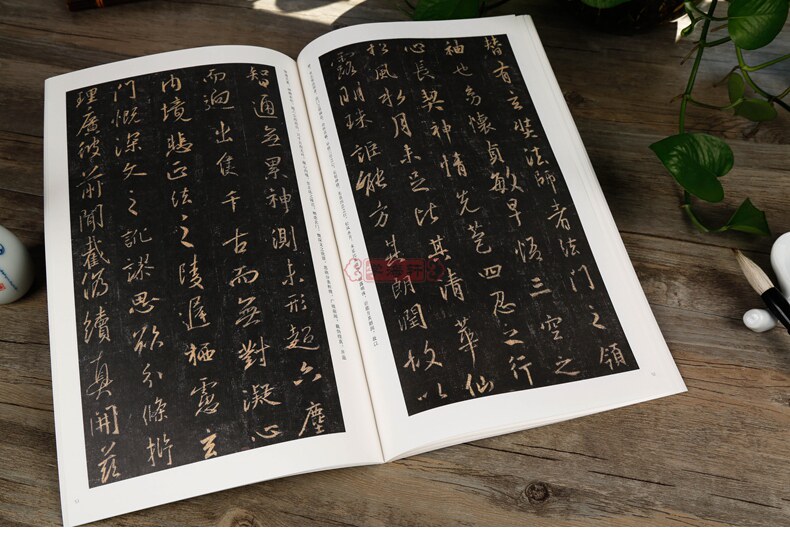 皆有玄奘法師者法門之領
袖也幼懷貞敏早悟三空之
心長契神情先苞四忍之行
松風水月未足比其清華仙
露明珠詎能方其朗潤故以
智通無累神測未形超六塵
而迥出隻千古而無對凝心
內境悲正法之陵遲栖慮玄
門慨深文之訛謬思欲分條析
理廣彼前聞截偽續真開茲